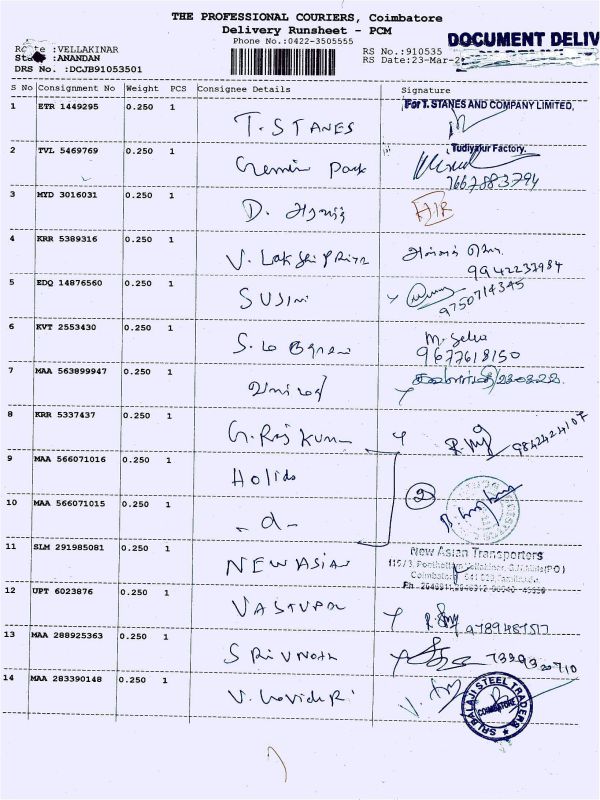 THE PROFESSIONAL COURIERS, Coimbatore
Delivery Runsheet - PCM
Phone No.:0422-3505555
DOCUMENT DELIV
Route :VELLAKINAR
:ANANDAN
DRS No. :DCJB91053501
RS No.:910535
RS Date:23-Mar-2
S No Consignment No Weight PCS Consignee Details Signature
1 ETR 1449295 0.250 1 T. STANES For T. STANES AND COMPANY LIMITED,
Tudiyalur Factory.
2 TVL 5469769 0.250 1 Gemini Park 7667883794
3 MYD 3016031 0.250 1 D. H/R
4 KRR 5389316 0.250 1 V. Lakshi Priya 9942233984
5 EDQ 14876560 0.250 1 SUSINI 9750714345
6 KVT 2553430 0.250 1 M. Selva
9677618150
7 MAA 563899947 0.250 1
8 KRR 5337437 0.250 1 G. Raj Kumar 9842424107
9 MAA 566071016 0.250 1 Holida
10 MAA 566071015 0.250 1 - d - 2
11 SLM 291985081 0.250 1 NEW ASIAN New Asian Transporters
Coimbatore 641 029
12 UPT 6023876 0.250 1 VASTUPA 9789487517
13 MAA 288925363 0.250 1 SRIVNATH 7339320710
14 MAA 283390148 0.250 1 SRI BALAJI STEEL TRADERS
COIMBATORE